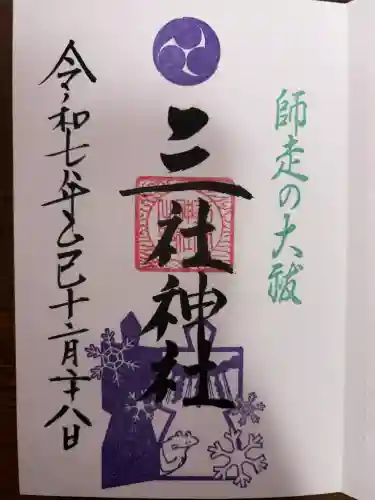 師走の大祓
三社神社
令和七年乙巳十二月二十八日